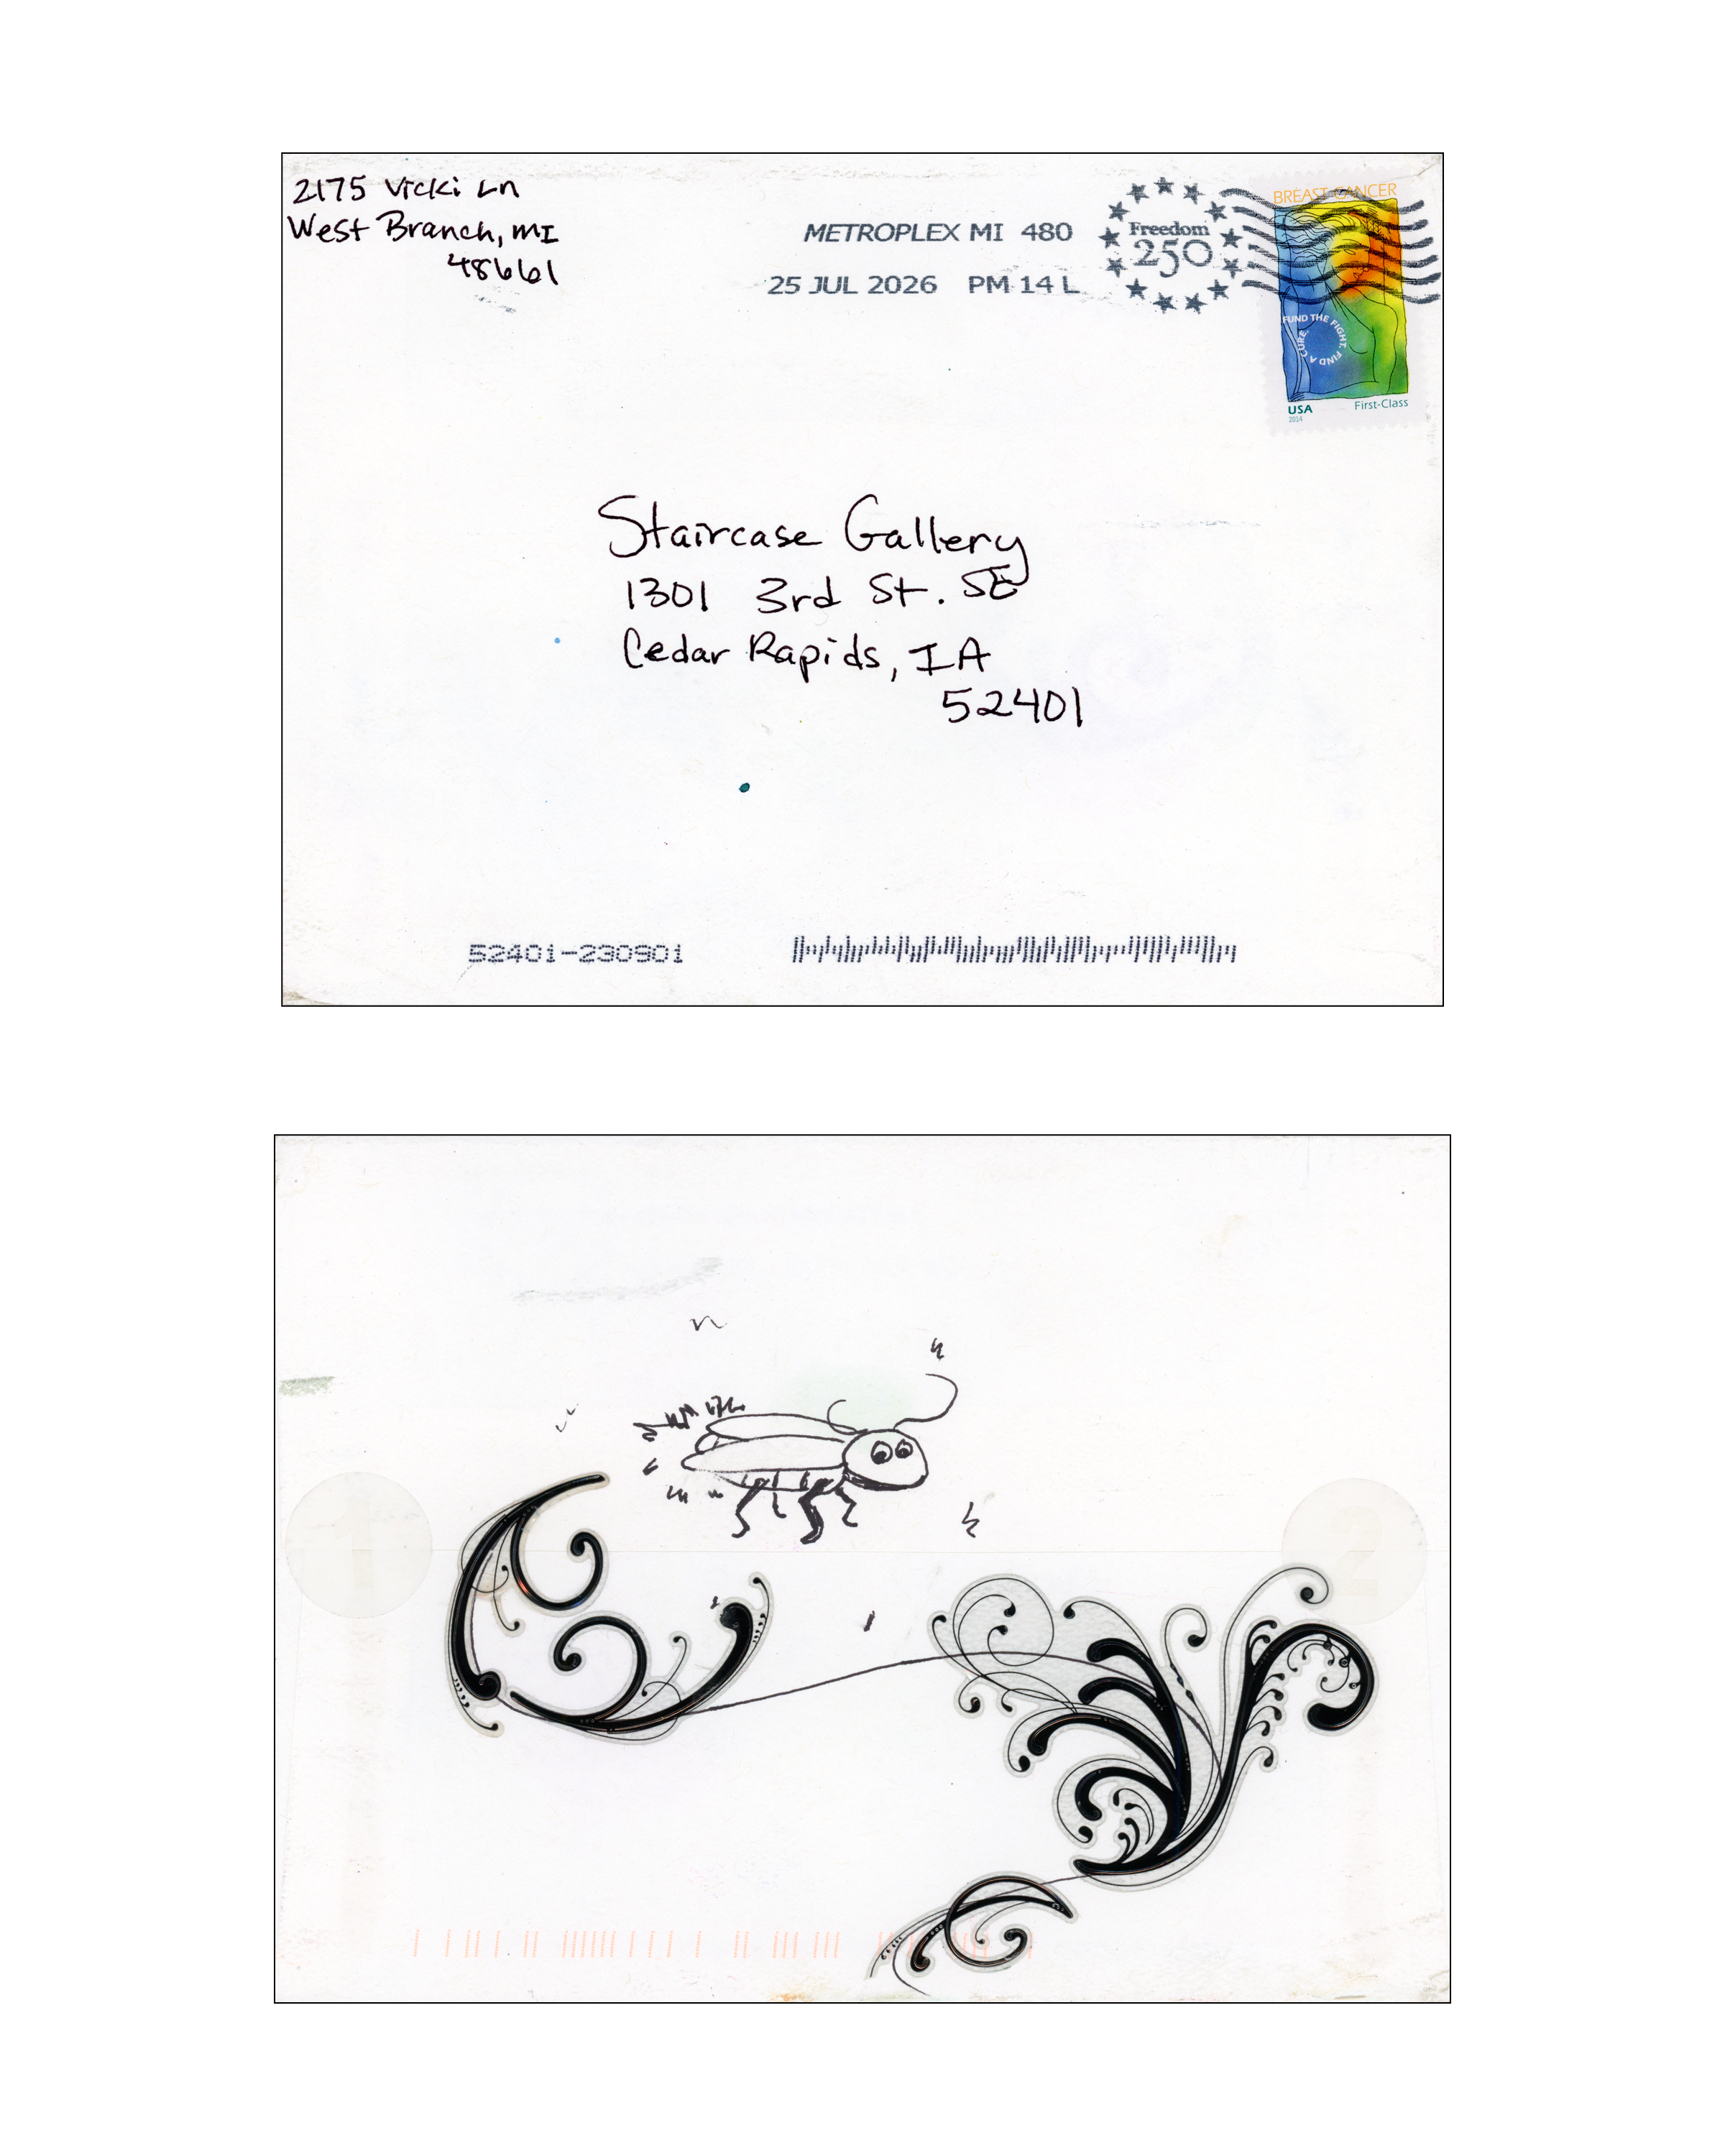 2175 Vicki Ln
West Branch, MI
48661
METROPLEX MI 480
25 JUL 2026 PM 14 L
Freedom
250
BREAST CANCER
FUND THE FIGHT. FIND A CURE.
USA First-Class
2014
Staircase Gallery
1301 3rd St. SE
Cedar Rapids, IA
52401
52401-230901
1
2